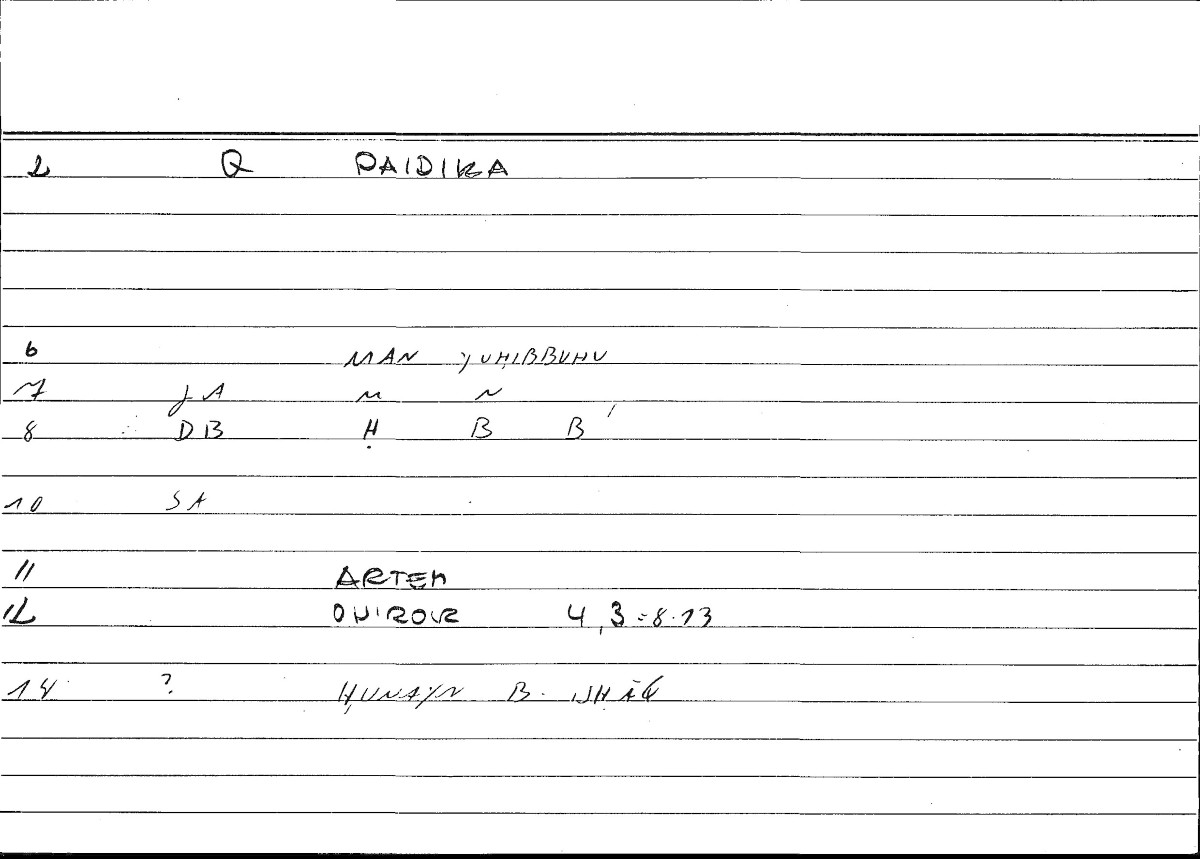 2 Q PAIDIKA
6 MAN YUḤIBBUHU
7 JA M N
8 DB Ḥ B B
10 SA
11 ARTEM
12 ONIROKR 4,3 = 8.13
14 ? ḤUNAYN B. ISḤĀQ